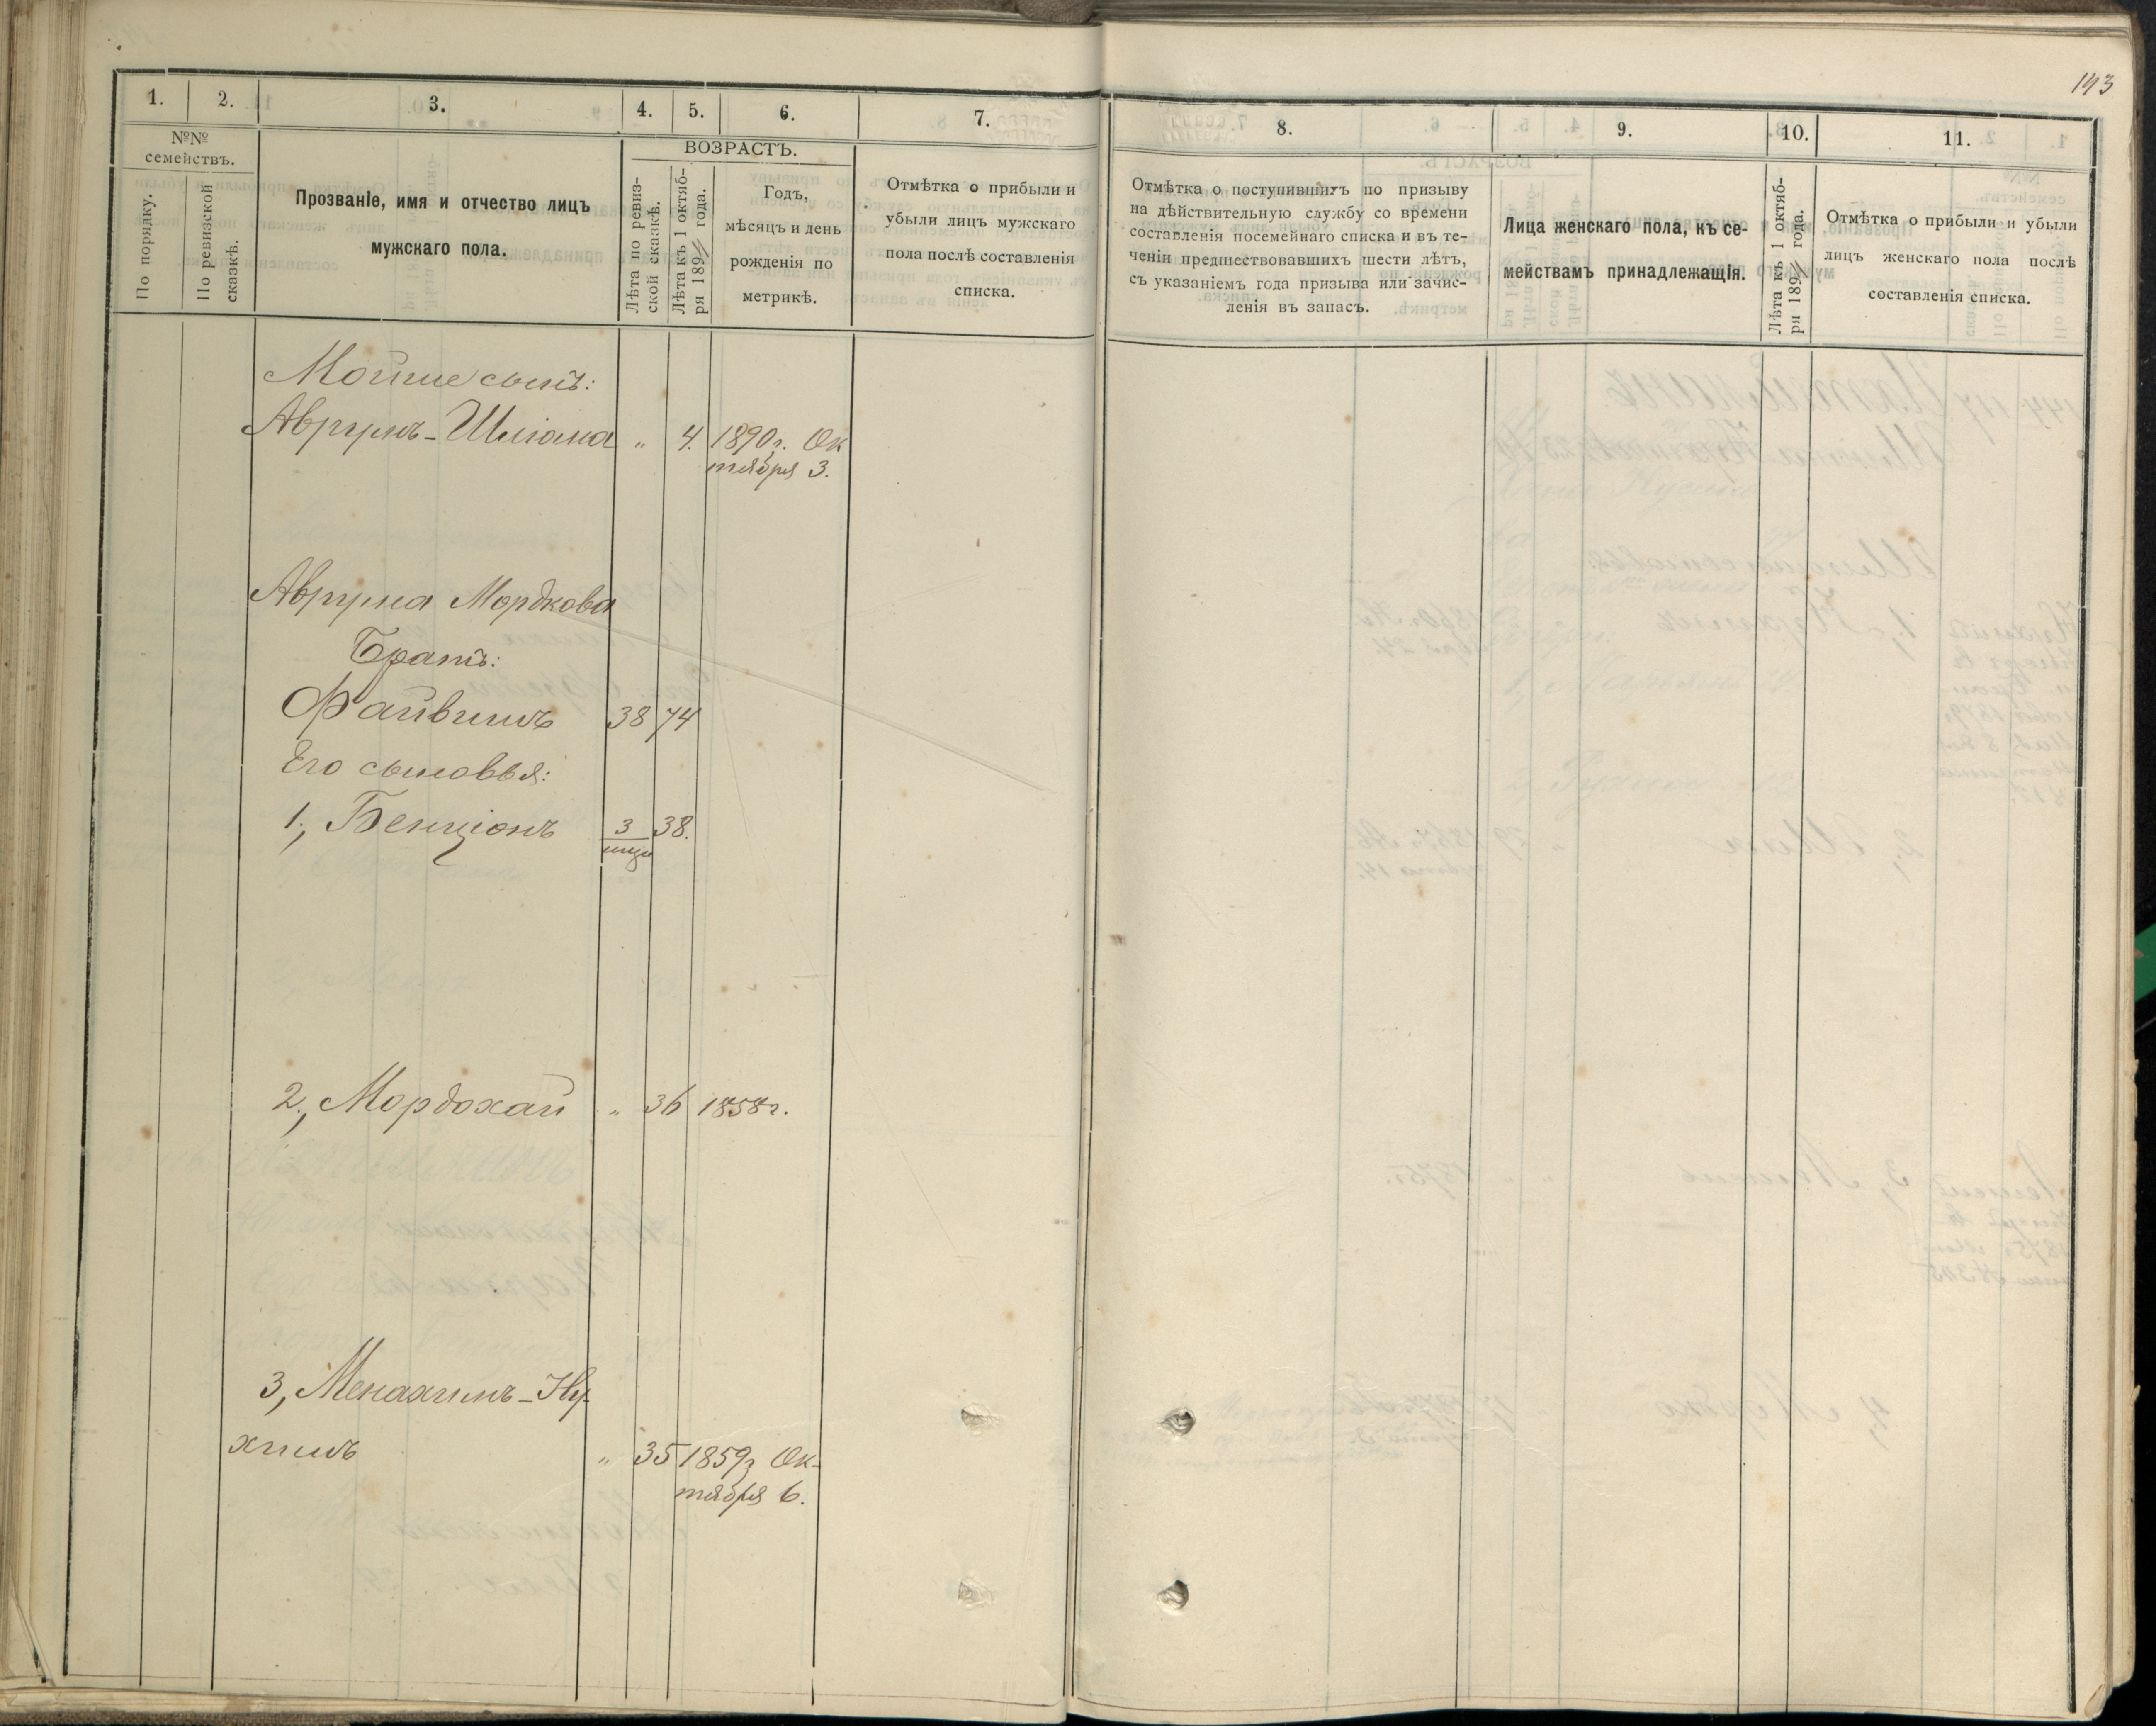 143
1.
2.
3.
4.
5.
6.
7.
8.
9.
10.
11.
№№ семействъ.
По порядку.
По ревизской сказкѣ.
Прозваніе, имя и отчество лицъ
мужскаго пола.
ВОЗРАСТЪ.
Лѣта по ревиз-
ской сказкѣ.
Лѣта къ 1 октяб-
ря 189 года.
Годъ,
мѣсяцъ и день
рожденія по
метрикѣ.
Отмѣтка о прибыли и
убыли лицъ мужскаго
пола послѣ составленія
списка.
Отмѣтка о поступившихъ по призыву
на дѣйствительную службу со времени
составленія посемейнаго списка и въ те-
ченіи предшествовавшихъ шести лѣтъ,
съ указаніемъ года призыва или зачис-
ленія въ запасъ.
Лица женскаго пола, къ се-
мействамъ принадлежащія.
Лѣта къ 1 октяб-
ря 189 года.
Отмѣтка о прибыли и убыли
лицъ женскаго пола послѣ
составленія списка.
Мойше сынъ:
Аврумъ-Шліома " 4. 1890 г. Ок
тября 3.
Аврума Мордкова
Братъ:
Файвишъ 38 74
Его сыновья:
1, Бенціонъ 3 38.
2, Мордохай " 36 1858 г.
3, Менахимъ-Ну-
химъ " 35 1859 г Ок-
тября 6.